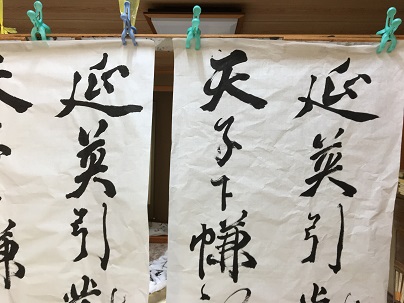 延英引
天子下㡘
延英引